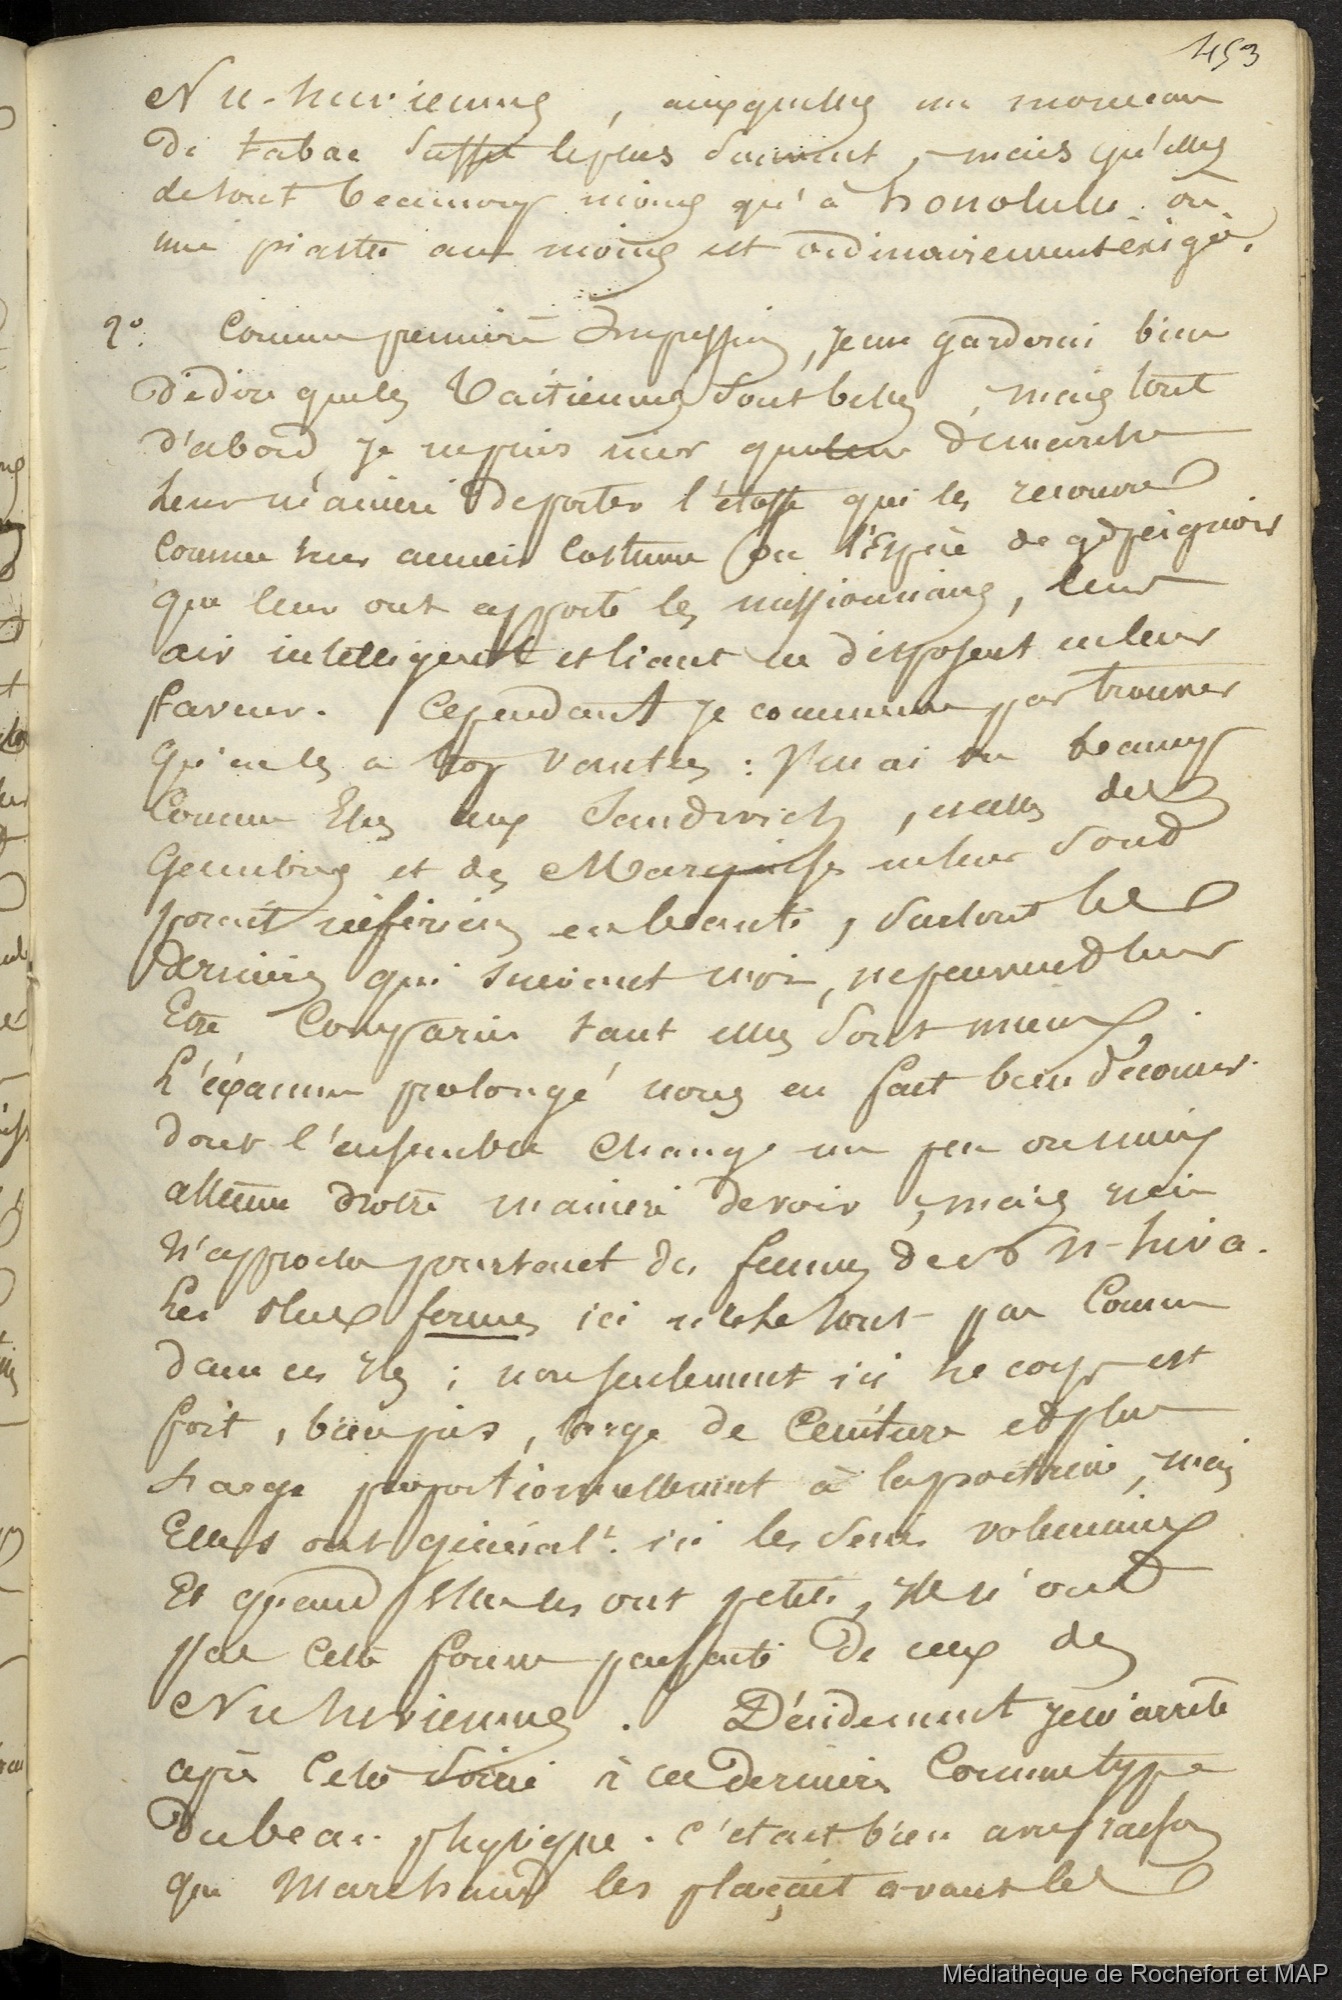 453
Nu-hiviennes, auxquelles un morceau
de tabac suffit le plus souvent, mais qu'elles
de tout beaucoup moins qu'à honolulu où
une piastre au moins est ordinairement exigée.
2°. Comme première Impression, je me garderai bien
de dire que les Taïtiennes sont belles, mais tout
d'abord je ne puis nier que leur démarche
leur manière de porter l'étoffe qui les recouvre
comme leur ancien costume ou l'Espèce de peignoir
que leur ont apporté les missionnaires, leur
air intelligent et liant ne disposent en leur
faveur. Cependant je commence par trouver
qu'on les a trop vantées : J'en ai vu beaucoup
comme Elles aux Sandwich, et celles des
Gambiers et des Marquises en leur
point inférieures en beauté, surtout les
dernières qui suivant moi, ne peuvent leur
Etre Comparées tant elles sont mieux.
L'éxamen prolongé nous en fait bien découvrir
dont l'ensemble change un peu ou moins
atténue notre manière de voir, mais rien
n'approche pourtant des femmes de N-hiva.
Les plus formes ici ne le sont pas comme
dans ces Iles ; non seulement ici le corps est
fort, bien pris, large de Ceinture et plus
large proportionnellement à la poitrine, mais
Elles ont général.t ici les seins volumineux
Et quand Elles les ont petits, ils n'ont
pas cette forme parfaite de ceux des
Nuhiviennes. Décidement je m'arrête
après cette soirée à ces dernières comme type
du beau physique. C'était bien avec raison
que Marchand les plaçait avant les